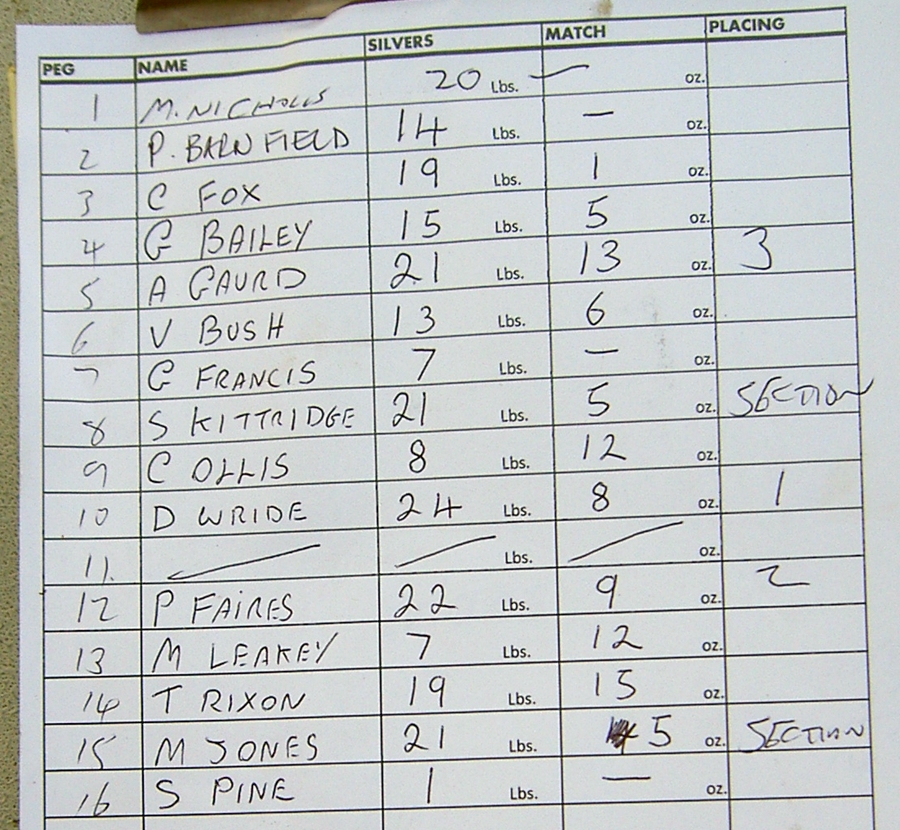 PEG NAME SILVERS MATCH PLACING
1 M. NICHOLLS 20 Lbs. — oz.
2 P. BARNFIELD 14 Lbs. — oz.
3 C FOX 19 Lbs. 1 oz.
4 G BAILEY 15 Lbs. 5 oz.
5 A GAURD 21 Lbs. 13 oz. 3
6 V BUSH 13 Lbs. 6 oz.
7 G FRANCIS 7 Lbs. — oz.
8 S KITTRIDGE 21 Lbs. 5 oz. SECTION
9 C OLLIS 8 Lbs. 12 oz.
10 D WRIDE 24 Lbs. 8 oz. 1
11. Lbs. oz.
12 P FAIRES 22 Lbs. 9 oz. 2
13 M LEAKEY 7 Lbs. 12 oz.
14 T RIXON 19 Lbs. 15 oz.
15 M JONES 21 Lbs. 5 oz. SECTION
16 S PINE 1 Lbs. — oz.